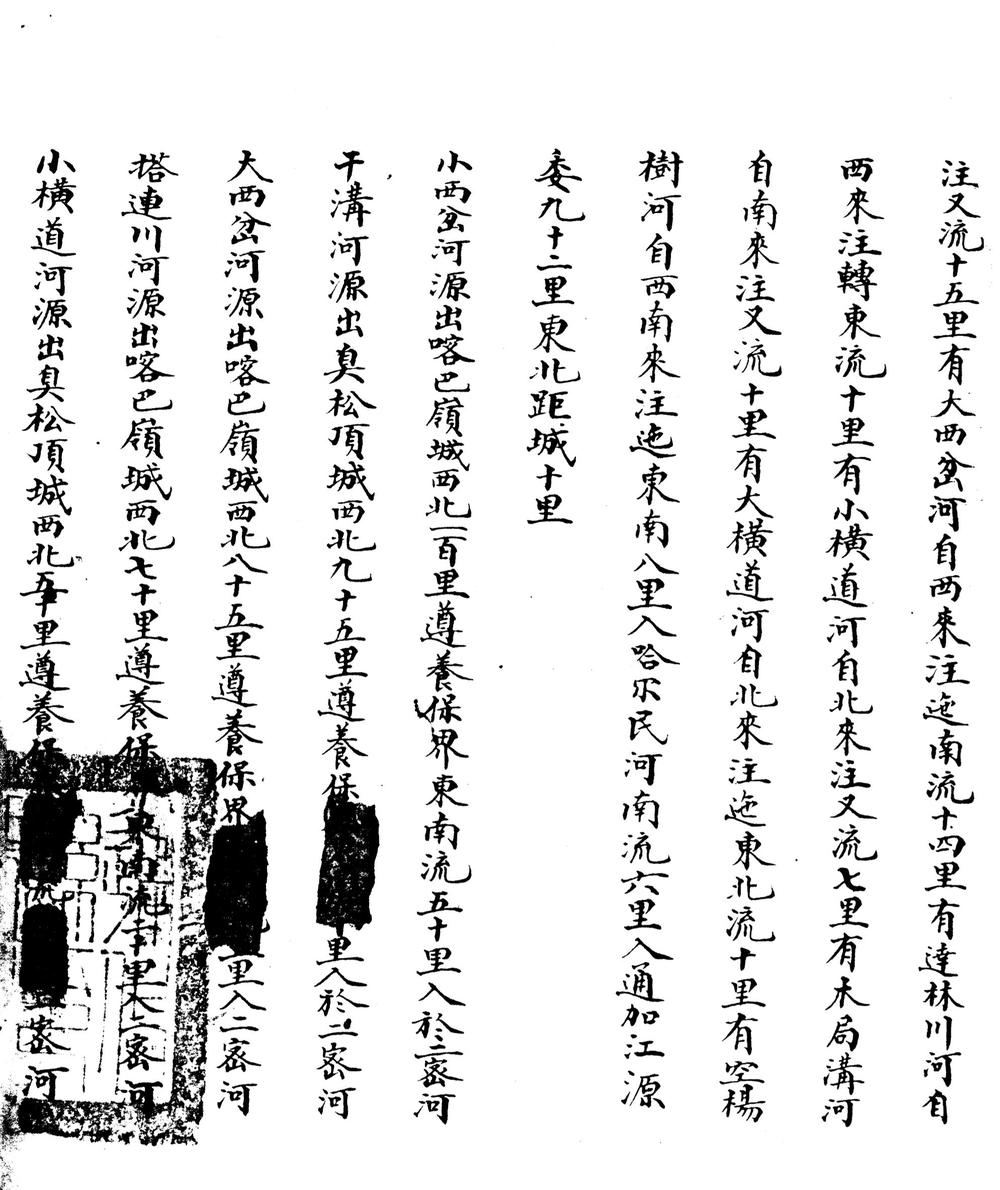 注又流十五里有大西岔河自西來注迤南流十四里有達林川河自
西來注轉東流十里有小橫道河自北來注又流七里有木局溝河
自南來注又流十里有大橫道河自北來注迤東北流十里有空楊
樹河自西南來注迤東南八里入哈尔民河南流六里入通加江源
委九十二里東北距城十里
小西岔河源出喀巴嶺城西北一百里遵養保界東南流五十里入於二密河
干溝河源出臭松頂城西北九十五里遵養保里入於二密河
大西岔河源出喀巴嶺城西北八十五里遵養保界里入二密河
搭連川河源出喀巴嶺城西北七十里遵養保東南流里入二密河
小橫道河源出臭松頂城西北里遵養保流密河